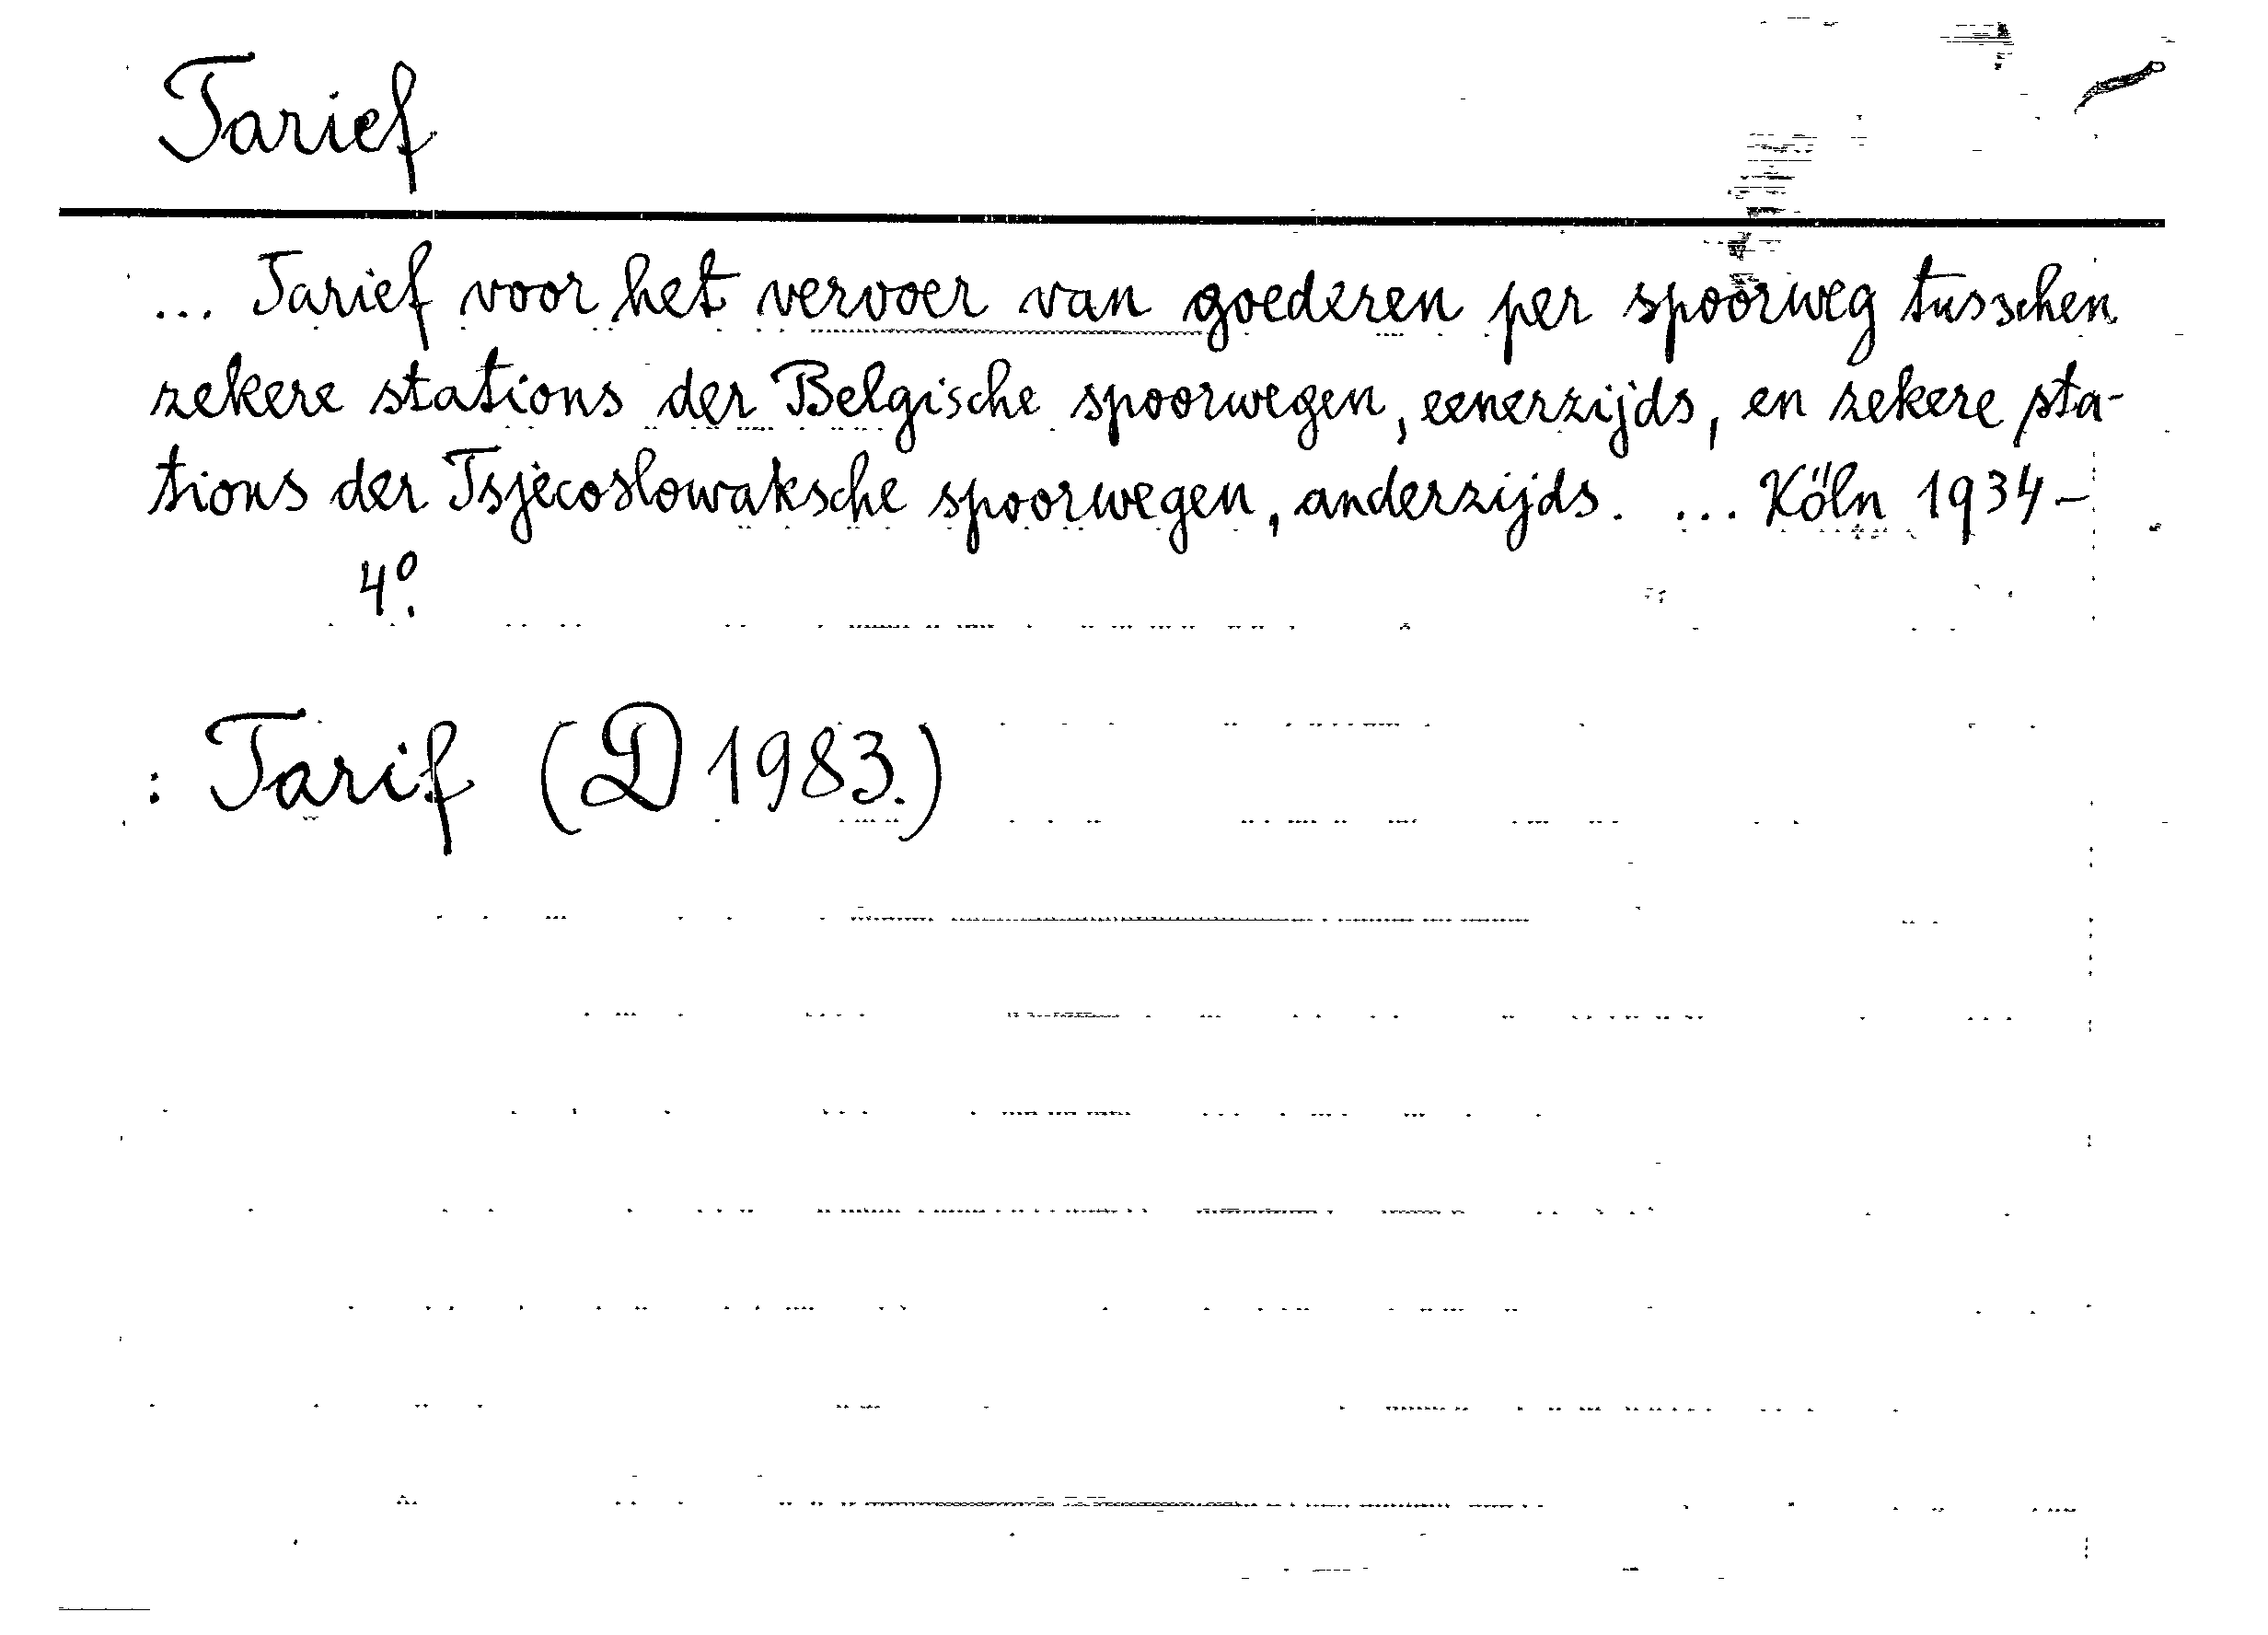 Tarief
... Tarief voor het vervoer van goederen per spoorweg tusschen
zekere stations der Belgische spoorwegen, eenerzijds, en zekere sta-
tions der Tsjecoslowaksche spoorwegen, anderzijds. ... Köln 1934-
4º.
: Tarif (D 1983.)